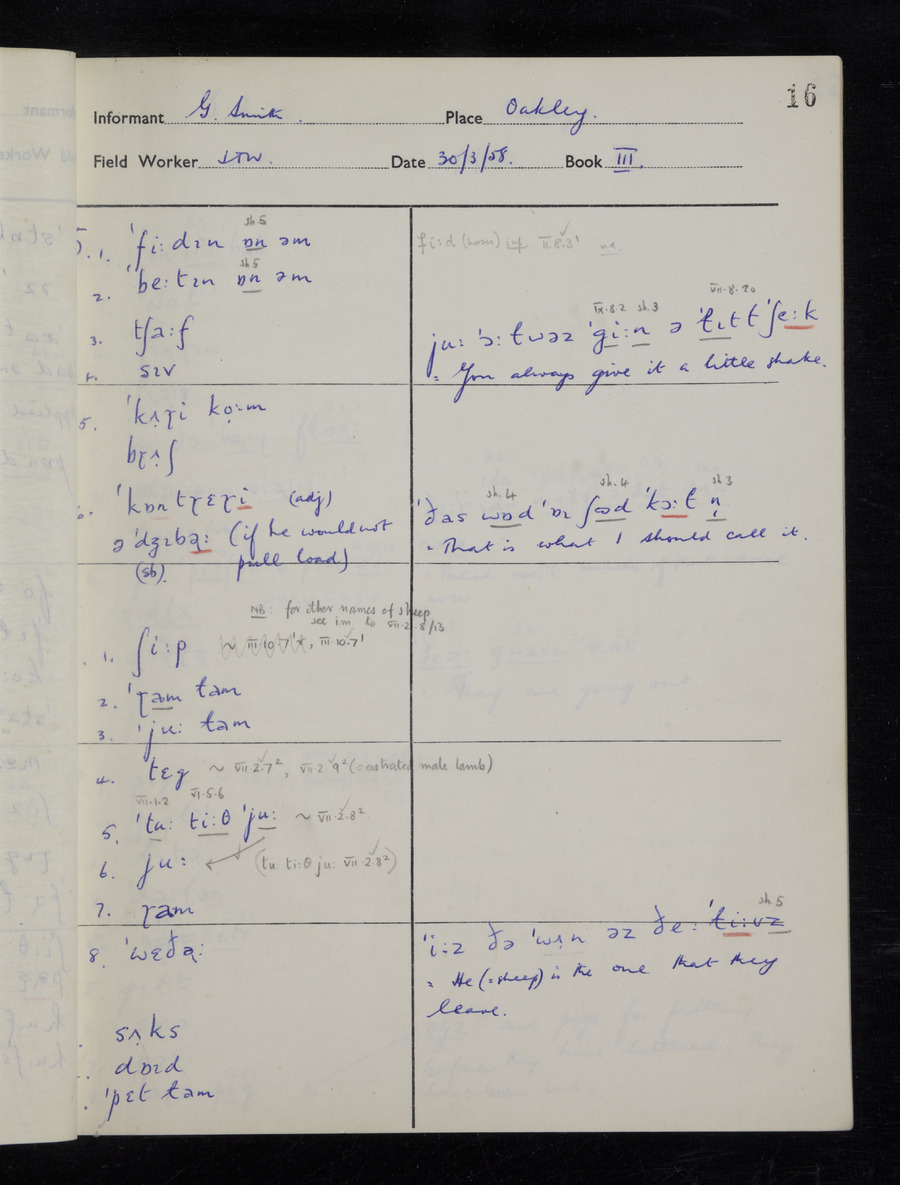 16
Informant G. Smith. Place Oakley.
Field Worker Date 30/3/58. Book III.
sh.5
1. ˈfiːdɪn ɒn əm
fiːd (horses) II.8.3
sh.5
2. ˈbeːtɪn ɒn əm
IX.8.2 sh.3 VII.8.20
3. tʃaːf
juː ˈɔːtwəz ˈgiːn ə ˈtɪt t ˈʃeːk
4. sɪv
= You always give it a little shake.
5. ˈkʌ̣ɽi kọːm
bɽʌ̣ʃ
sh.4 sh.4 sh.3
6. ˈkɒntɽɛɽi (adj)
ˈðas wɒd ˈɒɪ ʃəd ˈkɔːt n̩
ə ˈdʒɪbəː (if he would not
= That is what I should call it.
(sb) pull load)
NB: for other names of sheep
see i.m. to VII.2.8/13
1. ʃiːp ~ III.10.7, III.10.7¹
2. ˈɽam tam
3. ˈjuː tam
4. tɛg ~ VII.2.7², VII.2.9² (= castrated male lamb)
VII.1.2 VI.5.6
5. ˈtuː tiːθ ˈjuː ~ VII.2.8²
6. juː (tu tiːθ juː VII.2.8²)
7. ɽam
sh.5
8. ˈwɛðəː
ˈiːz ðə ˈwʌ̣n əz ðeː ˈtiːvz
= He (= sheep) is the one that they
leave.
sʌ̣ks
dɒɪd
ˈpɛt tam